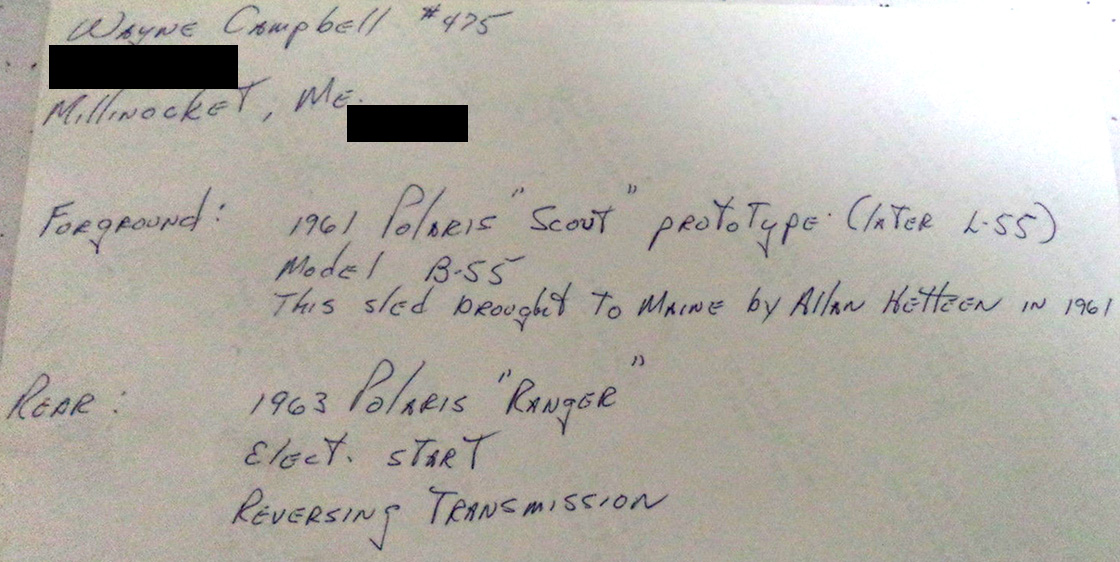 Wayne Campbell #475
Millinocket, Me.
Forground: 1961 Polaris "Scout" prototype (later L-55)
Model B-55
This sled brought to Maine by Allan Hetteen in 1961
Rear: 1963 Polaris "Ranger"
Elect. start
Reversing Transmission